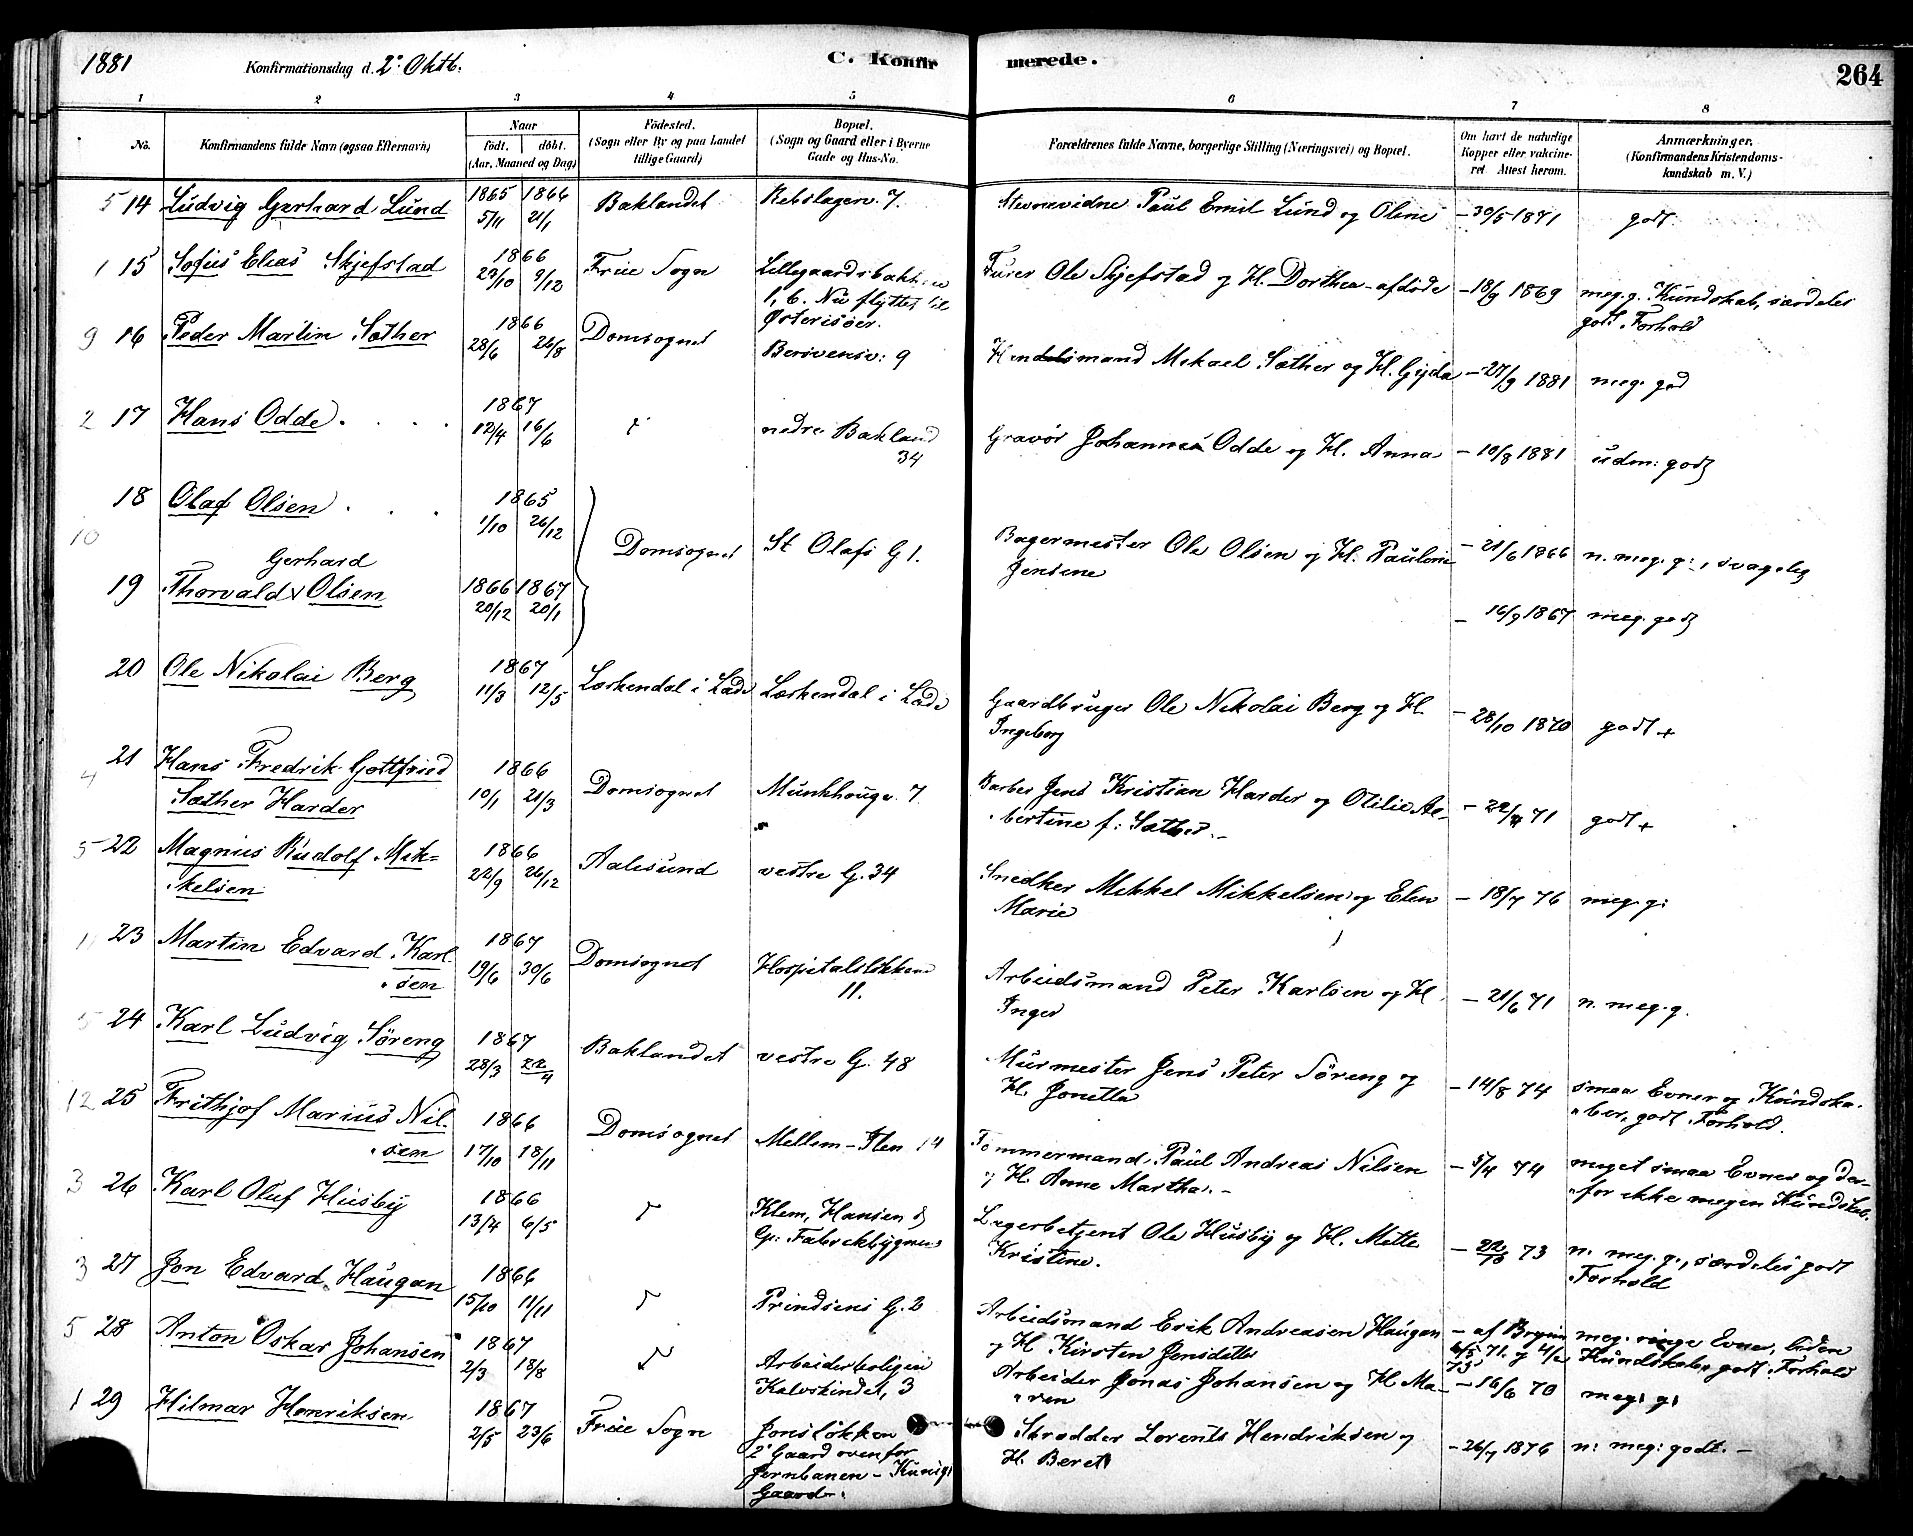 1881 Konfirmationsdag d. 2den Oktb. C. Konfirmerede. 264
1 2 3 4 5 6 7 8
No. Konfirmandens fulde Navn (ogsaa Efternavn) Naar født. døbt. (Aar, Maaned og Dag) Fødested. (Sogn eller By og paa Landet tillige Gaard) Bopæl. (Sogn og Gaard eller i Byerne Gade og Hus-No. Forældrenes fulde Navne, borgerlige Stilling (Næringsvei) og Bopæl. Om havt de naturlige Kopper eller vakcineret Attest herom. Anmærkninger. (Konfirmandens Kristendomskundskab m. V.)
5 14 Ludvig Gerhard Lund 1865 5/11 1866 21/1 Baklandet Rebslagerv. 7. Stevnevidne Paul Emil Lund og Oline - 30/5 1881 godt.
1 15 Sofus Elias Skjefstad 1866 29/10 9/12 Frue Sogn Lillegaardsbakken
1, b. Nu flyttet til
Østerisøer. Furer Ole Skjefstad og H. Dorthea - afdøde - 18/9 1869 meg. g. Kundskab, særdeles
godt Forhold
9 16 Peder Martin Sæther 1866 28/6 26/8 Domsognet 9 Handelsmand Mikael Sæther og H. Gijda - 27/9 1881 meg. god
2 17 Hans Odde. 1867 12/4 16/6 nedre Bakland
34 Gravør Johannes Odde og H. Anna - 10/8 1881 udm: godt
10 18 Olaf Olsen 1865 1/10 26/12 Domsognet St Olafs G 1. Bagermester Ole Olsen og H. Pauline
Jensine - 21/6 1866 n. meg. g:, svagelig
19 Thorvald Gerhard Olsen 1866 20/12 1867 20/1 - 16/9 1867 meg. godt
20 Ole Nikolai Berg 1867 11/3 12/5 Lerkendal i Lade Lerkendal i Lade Gaardbruger Ole Nikolai Berg og H.
Ingeborg - 28/10 1870 godt +
4 21 Hans Fredrik Gottfried
Sæther Harder 1866 10/1 21/3 Domsognet Munkhaugv. 7 Barber Jens Kristian Harder og Otilie Al-
bertine f: Sæther. - 71 godt +
5 22 Magnus Rudolf Mik=
kelsen 1866 22/9 26/12 Aalesund vestre G. 34 Snedker Mikkel Mikkelsen og Elen
Marie - 18/7 76 meg. g:
11 23 Martin Edvard Karl-
sen 1867 19/6 30/6 Domsognet Hospitalsløkken
11. Arbeidsmand Peter Karlsen og H
Inger - 21/6 71 n. meg. g.
5 24 Karl Ludvig Søreng 1867 28/3 22/4 Baklandet vestre G. 48 Murmester Jens Peter Søreng og
H. Jonetta - 14/8 74 smaa Evner og Kundska-
ber, godt Forhold.
12 25 Frithjof Marius Nil-
sen 1866 17/10 18/11 Domsognet Mellem-Ilen 14 Tømmermand Paul Andreas Nilsen
og H. Anne Martha. - 5/4 74 meget smaa Evner og der-
for ikke megen Kundskab.
3 26 Karl Oluf Husby 1866 13/4 6/5 Klem, Hansen &
Co: Fabrikbygning Lagerbetjent Ole Husby og H. Mette
Kristine. - 73 n. meg. g., særdeles godt
Forhold
3 27 Jon Edvard Haugan 1866 15/10 11/11 Prindsens G. 2 Arbeidsmand Erik Andreasen Haugan
og H Kirsten Jensdatter - af 71. og
73 meg: ringe Evner, liden
Kundskab, godt Forhold
5 28 Anton Oskar Johansen 1867 2/3 18/8 Arbeiderboligen
Kalvskindet, 3 Arbeider Jonas Johansen og H Ma-
ren - 16/6 70 meg: g:
1 29 Hilmar Henriksen 1867 2/5 23/6 Frue Sogn Jonsløkken
2den Gaard ovenfor
Jernbanen - Kunigs
Gaard. Skrædder Lorents Hendriksen og
H. Beret - 26/7 1876 n: meg: godt. -